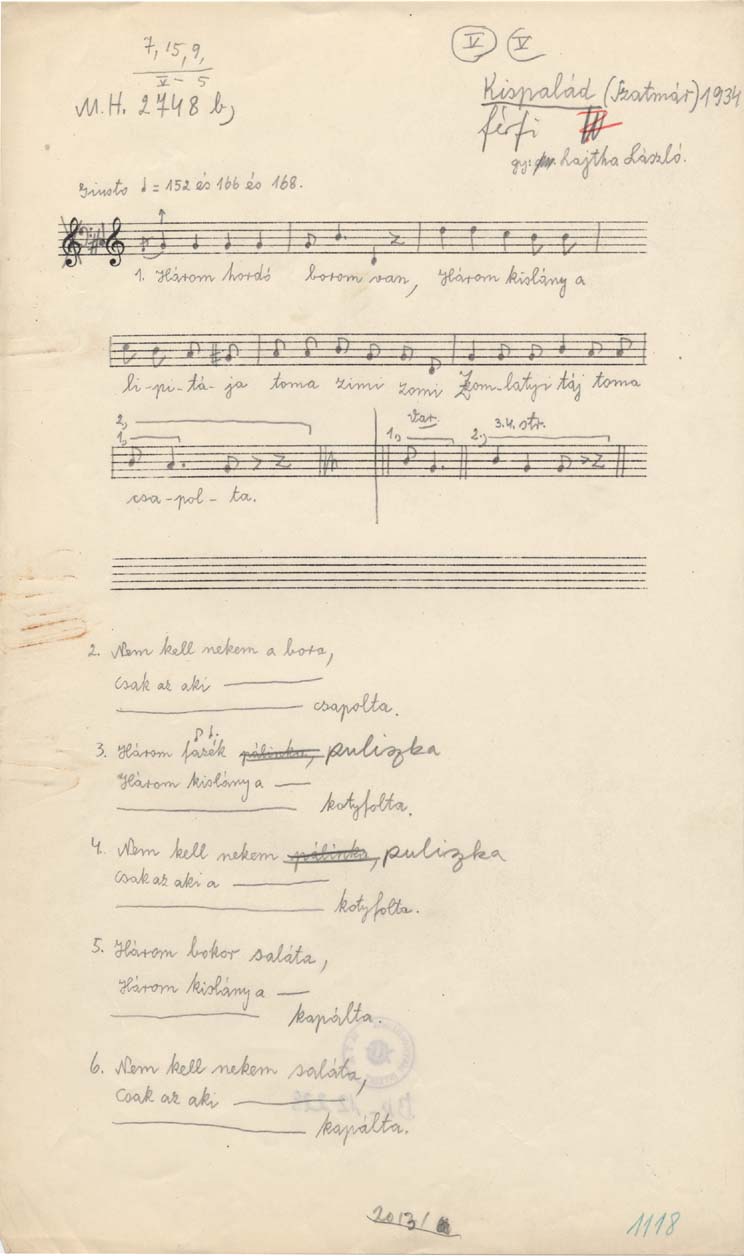 7, 15, 9,
V - 5
M.H. 2748 b,
V V
Kispalád (Szatmár) 1934
férfi
gy: Lajtha László.
Giusto ♩ = 152 és 166 és 168.
1. Három hordó borom van, Három kislány a
li-pi-tá-ja toma zimi zomi Zom-latyi táj toma
2,
1,
Var.
1,
2.,
3.4. str.
csa-pol-ta.
2. Nem kell nekem a bora,
csak az aki
csapolta.
3. Három fazék pálinka, puliszka
Három kislány a
kotyfolta.
4. Nem kell nekem pálinka, puliszka
csak az aki a
kotyfolta.
5. Három bokor saláta,
Három kislány a
kapálta.
6. Nem kell nekem saláta,
csak az aki
kapálta.
2013/
1118